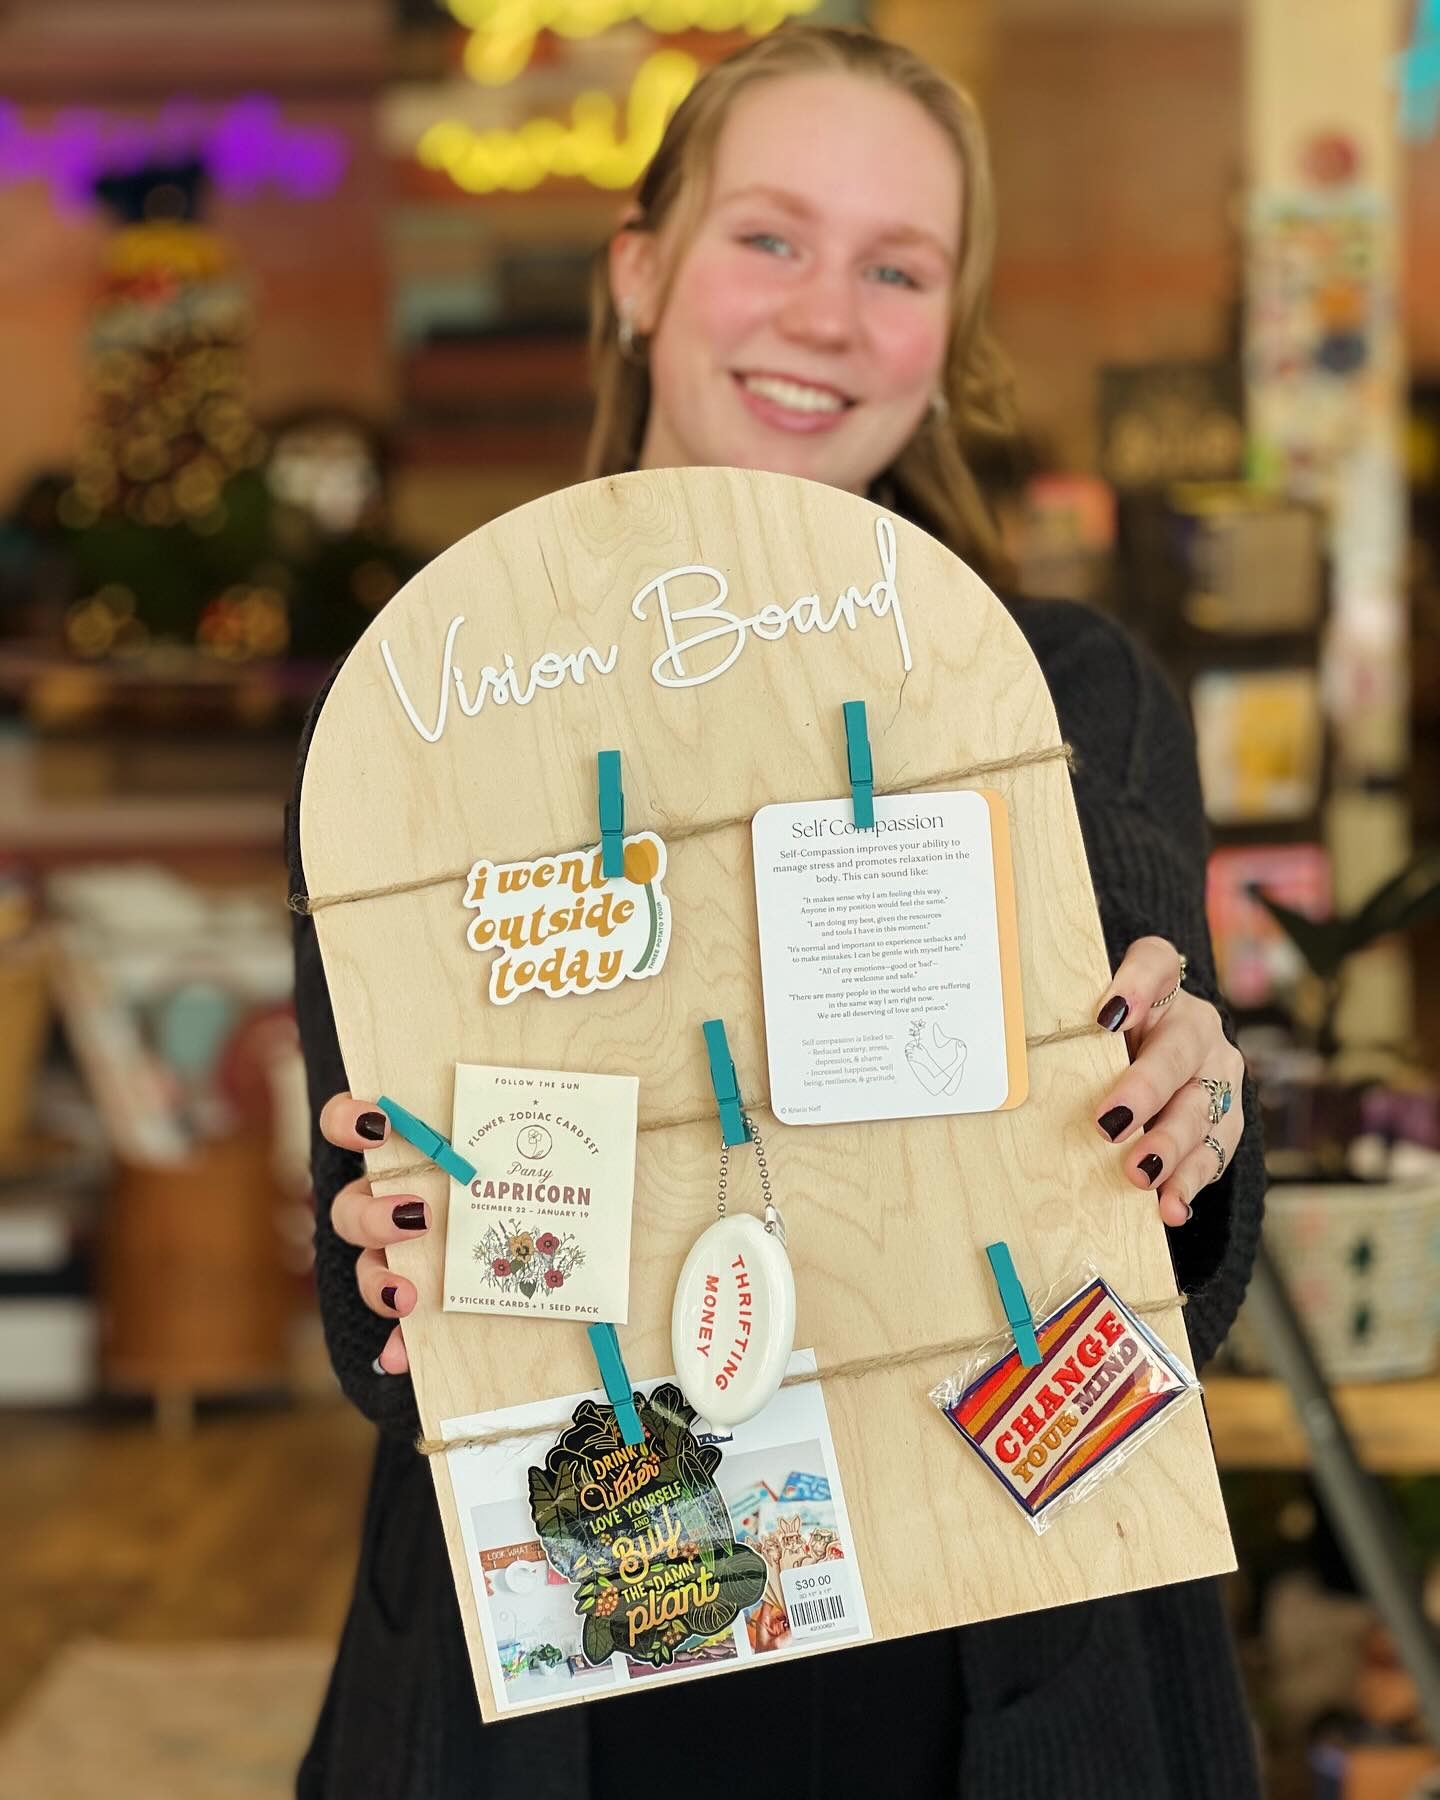 Vision Board
i went
outside
today
THREE POTATO FOUR
Self Compassion
Self-Compassion improves your ability to
manage stress and promotes relaxation in the
body. This can sound like:
"It makes sense why I am feeling this way.
Anyone in my position would feel the same."
"I am doing my best, given the resources
and tools I have in this moment."
"It's normal and important to experience setbacks and
to make mistakes. I can be gentle with myself here."
"All of my emotions—good or 'bad'—
are welcome and safe."
"There are many people in the world who are suffering
in the same way I am right now.
We are all deserving of love and peace."
Self compassion is linked to:
- Reduced anxiety, stress,
depression, & shame
- Increased happiness, well
being, resilience, & gratitude
© Kristin Neff
FOLLOW THE SUN
FLOWER ZODIAC CARD SET
Pansy
CAPRICORN
DECEMBER 22 - JANUARY 19
9 STICKER CARDS + 1 SEED PACK
THRIFTING
MONEY
CHANGE
YOUR MIND
DRINK
Water
LOVE YOURSELF
AND
Buy
THE DAMN
plant
LOOK WHAT
$30.00